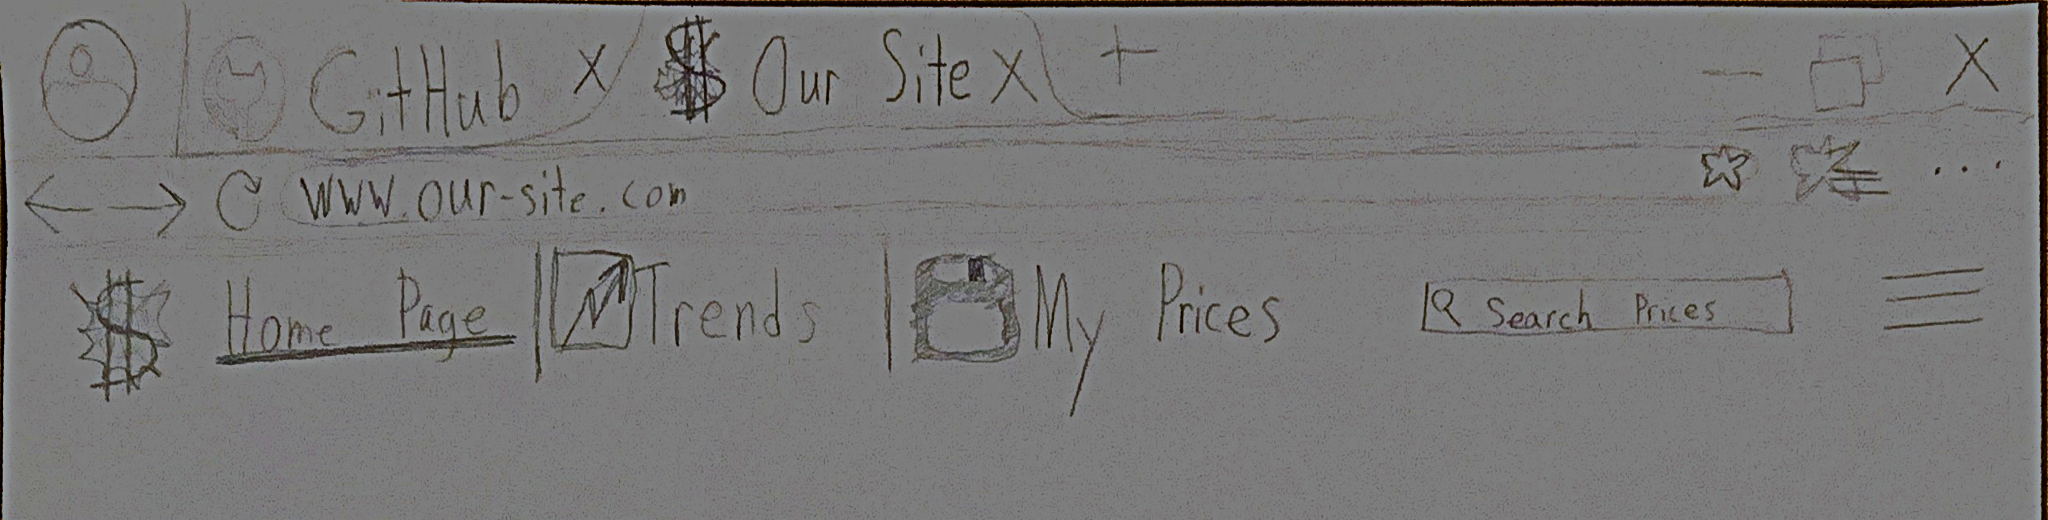 GitHub X $ Our Site X +
www.our-site.com ...
$ Home Page | Trends | My Prices Search Prices